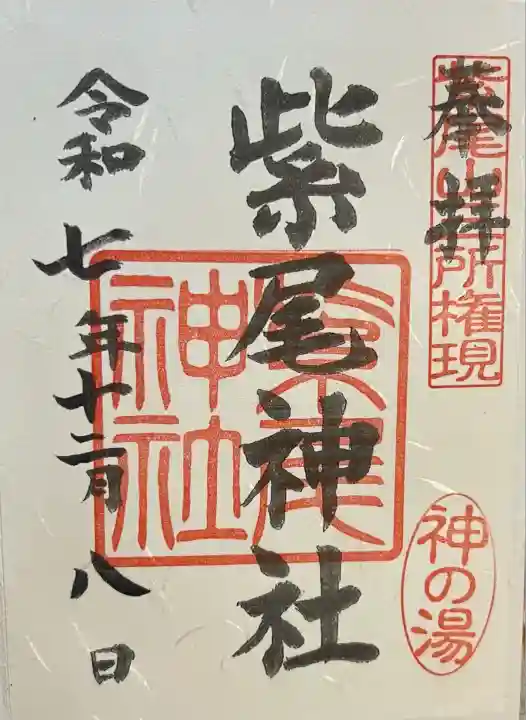 奉拝
紫尾山三所権現
神の湯
紫尾神社
紫尾
神社
令和七年十二月八日